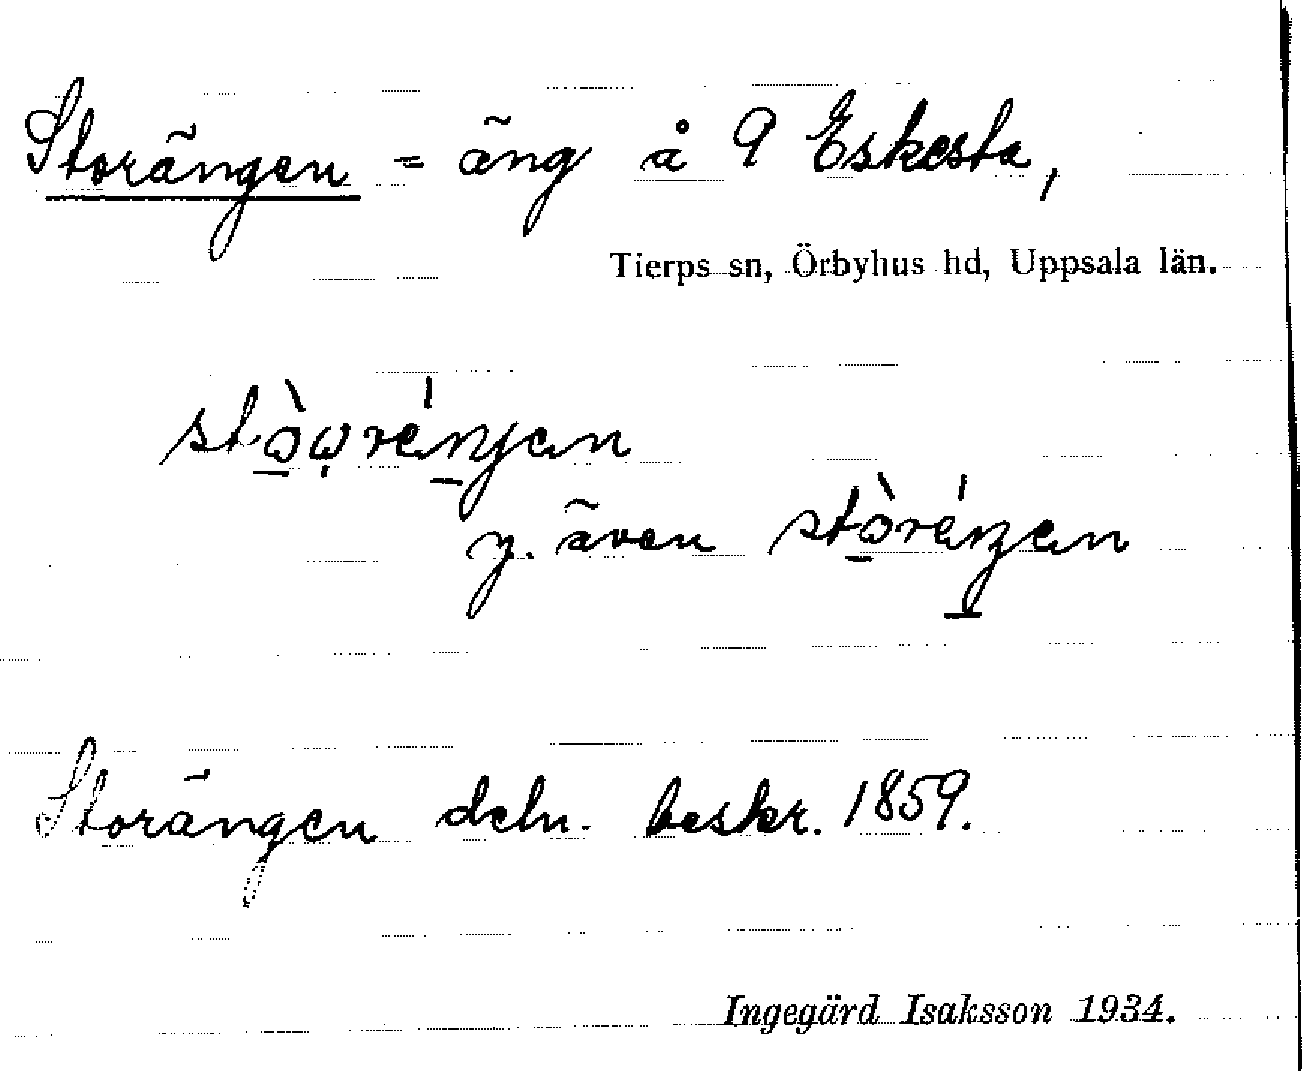 Storängen = äng å 9 Eskesta,
Tierps sn, Örbyhus hd, Uppsala län.
y. även
Storängen deln. beskr. 1859.
Ingegärd Isaksson 1934.